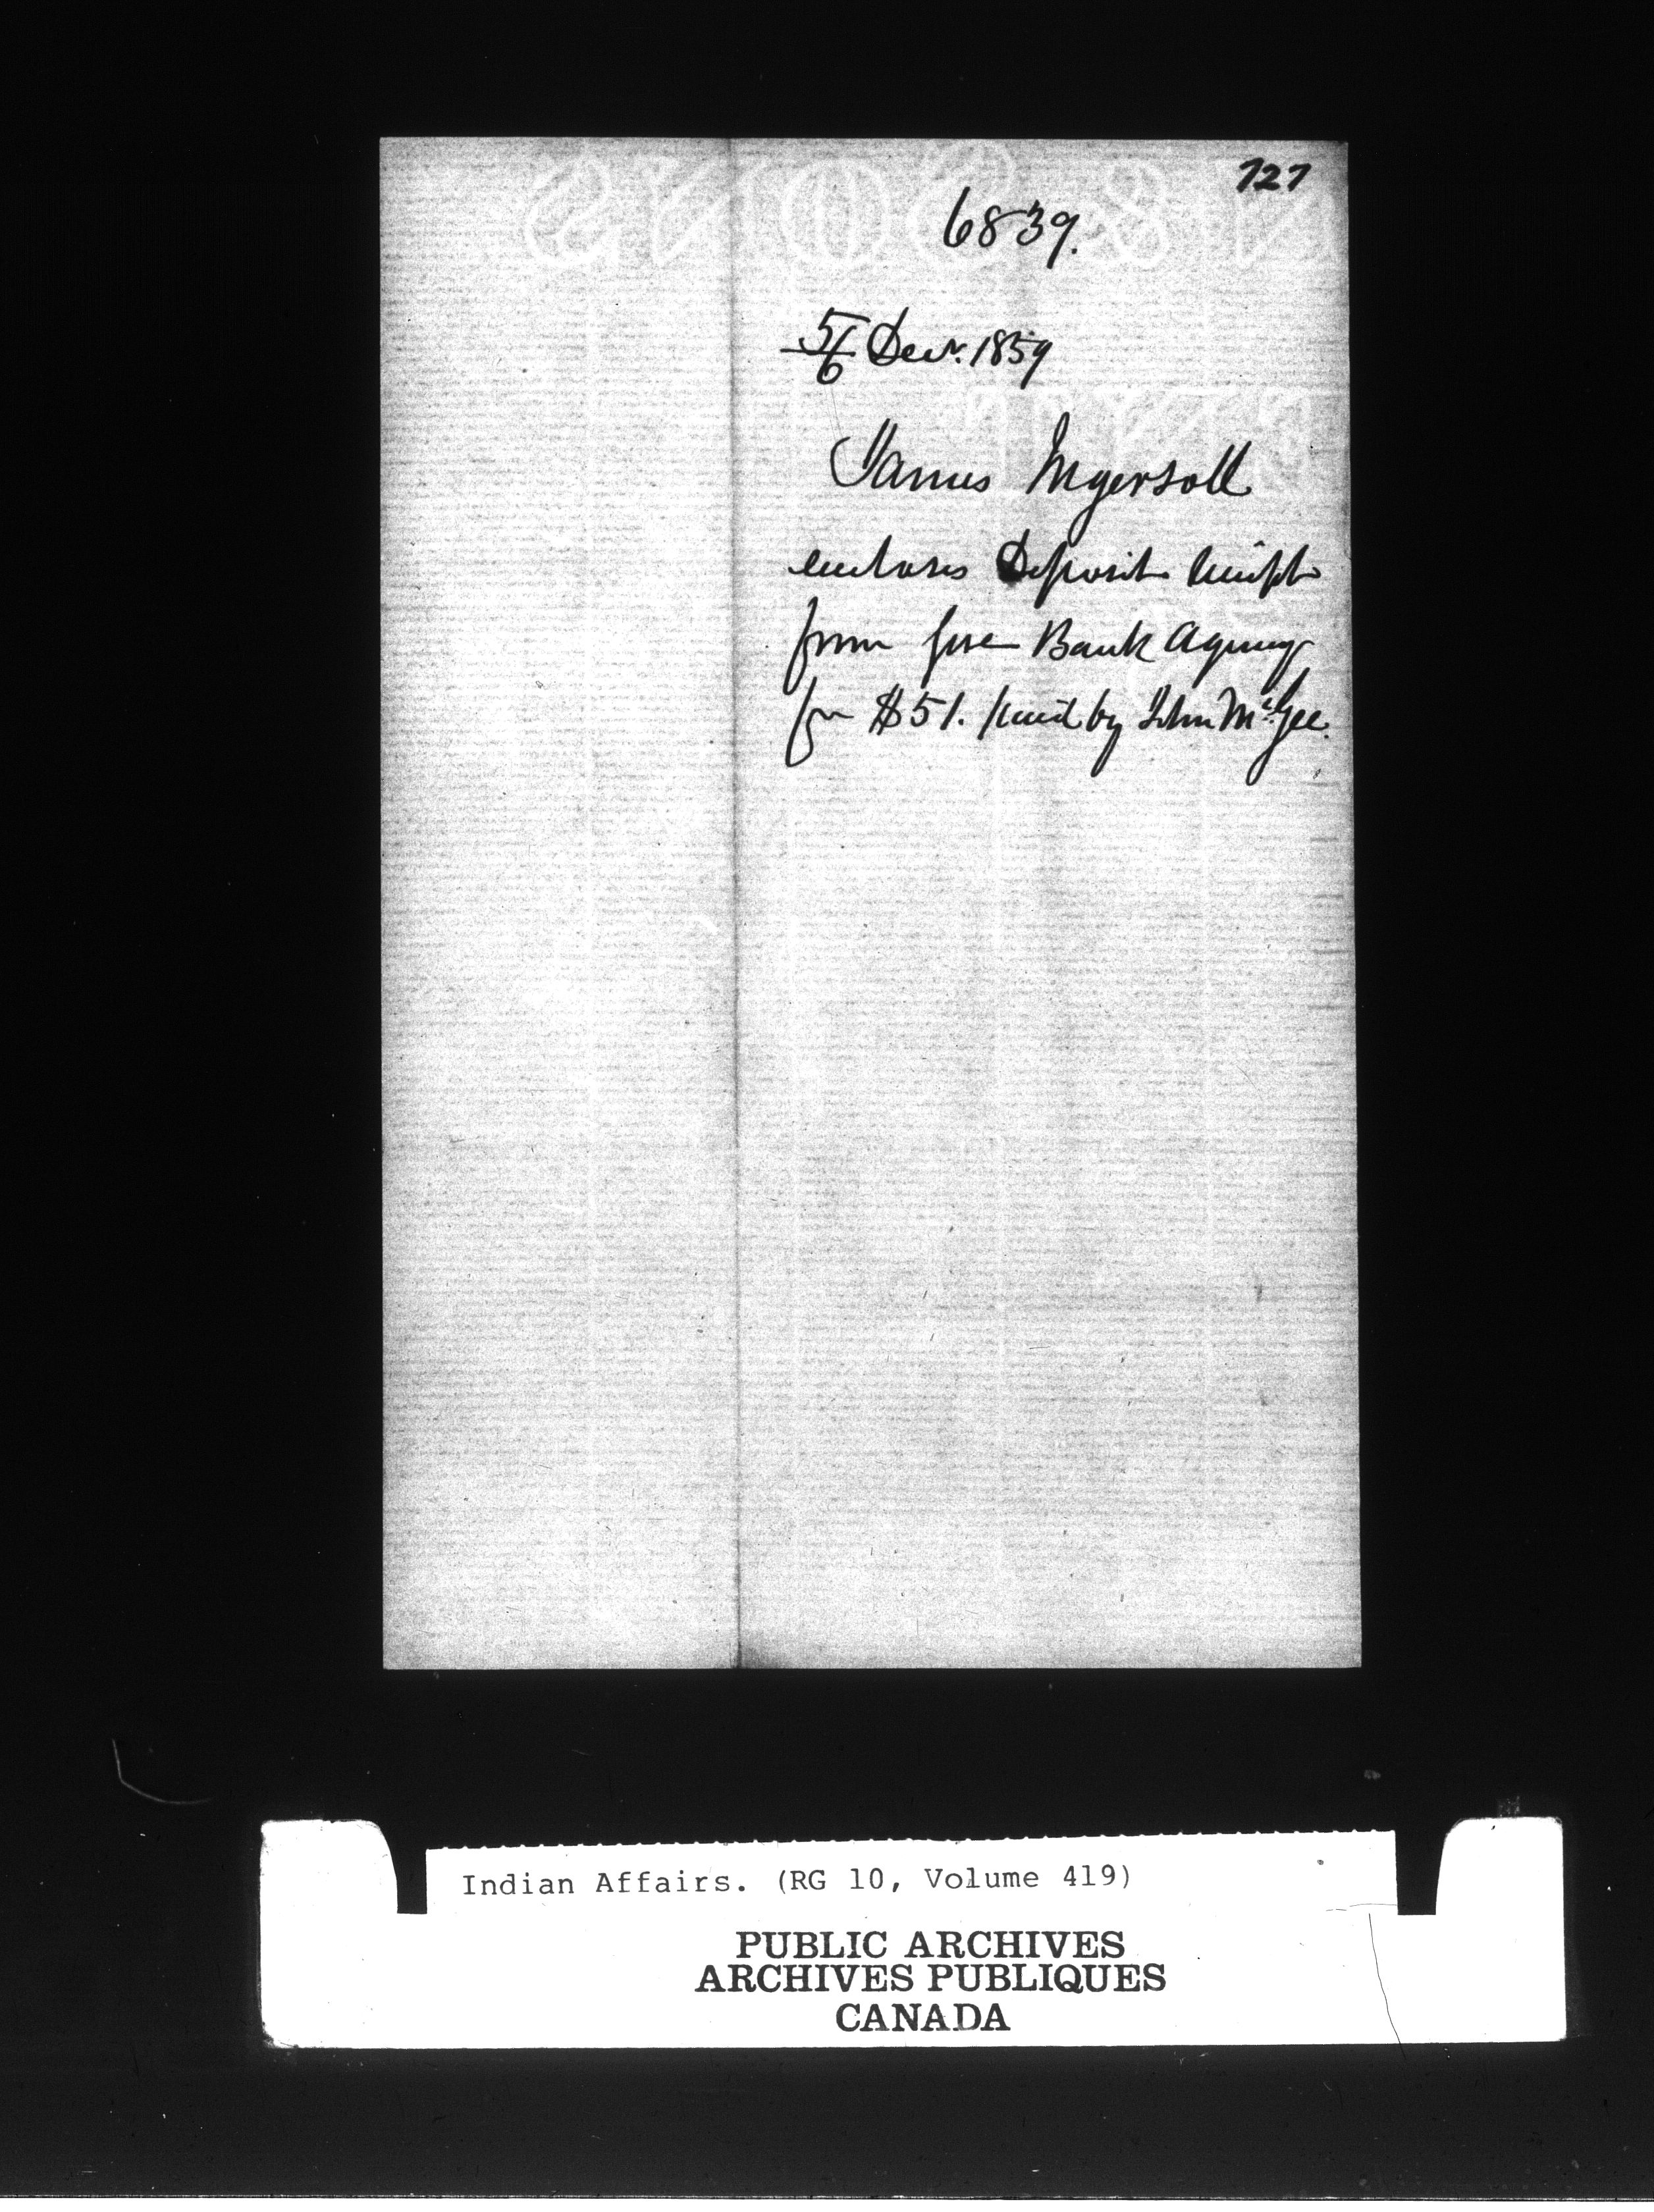 727
6839.
5/6 Decr. 1859
James Ingersoll
encloses Deposit receipt
from Gore Bank Agency
for $51. paid by John McGee.
Indian Affairs. (RG 10, Volume 419)
PUBLIC ARCHIVES
ARCHIVES PUBLIQUES
CANADA